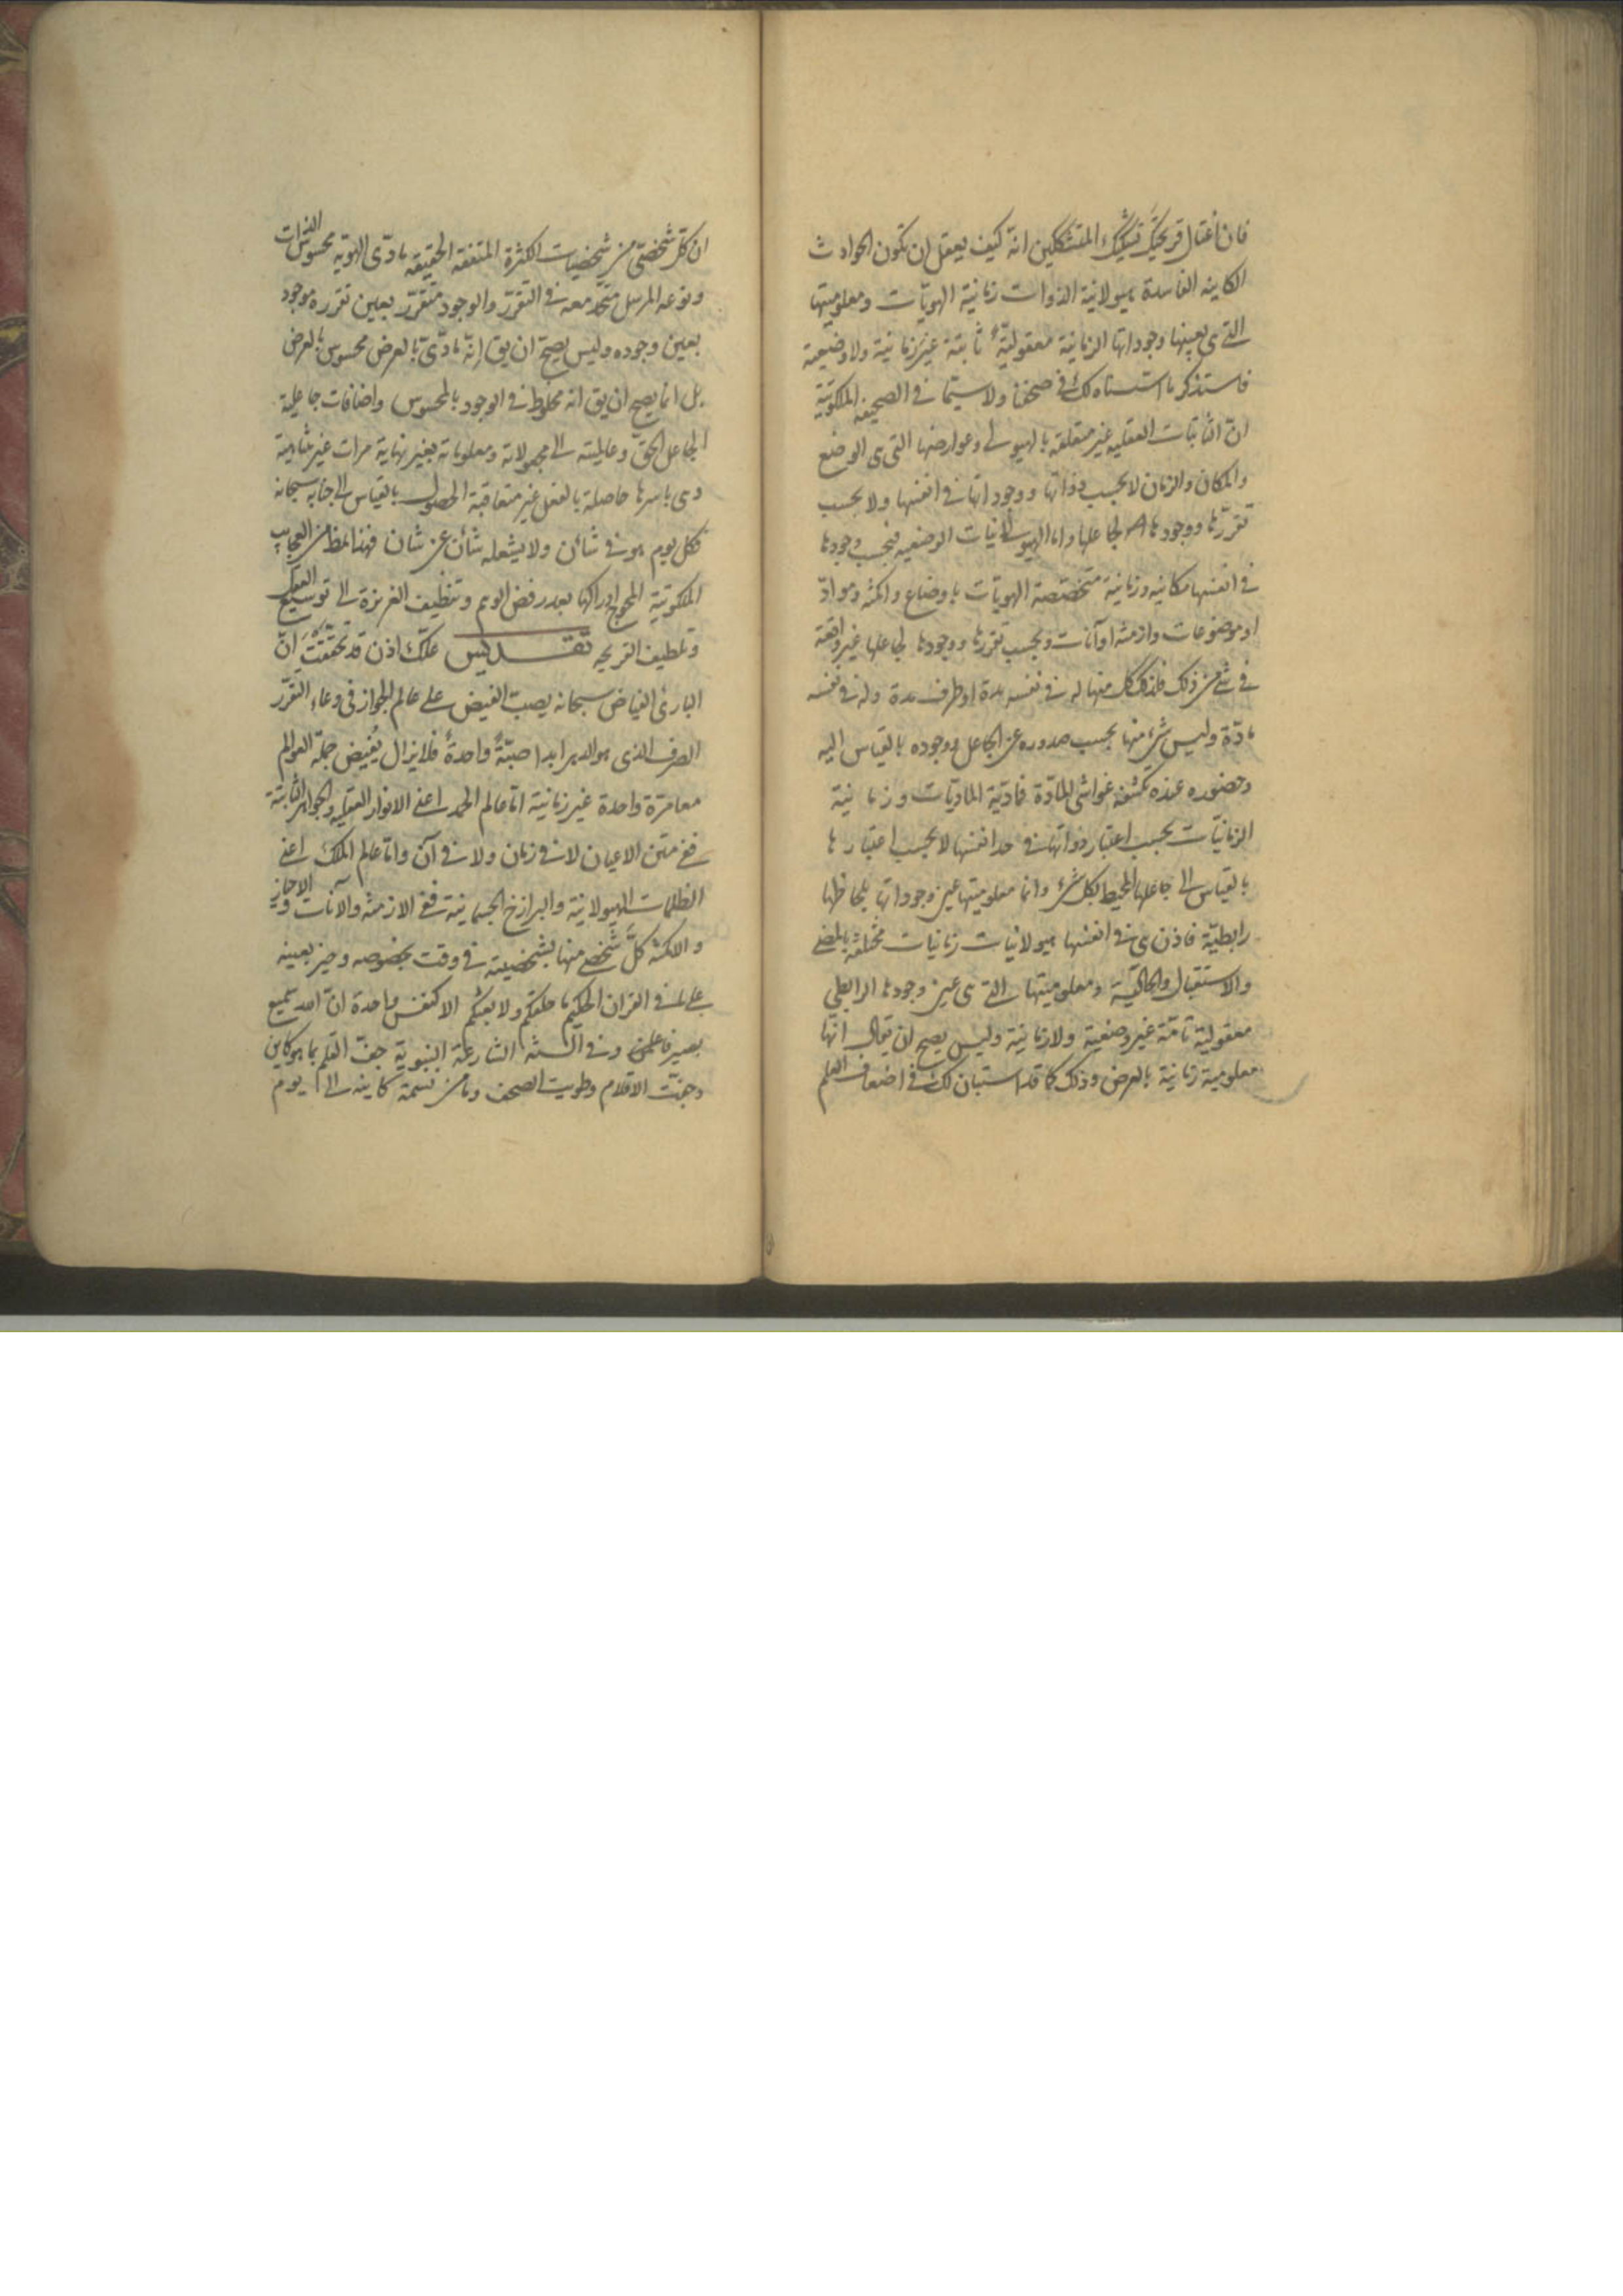 فان اغتال قريحتك تشكيك المتشككين انه كيف يعقل ان تكون الحوادث
الكاينه الفاسدة هيولانية الذوات زمانية الهويّات ومعلوميتها
التى هى بعينها وجوداتها الزمانية معقوليّةً ثابتة غير زمانية ولا وضعية
فاستذكر ما اسلفناه لك فى صحفنا ولا سيّما فى الصحيفه الملكوتية
انّ الثابتات العقليه غير متعلقه بالهيولى وعوارضها التى هى الوضع
والمكان والزمان لا بحسب ذواتها ووجوداتها فى انفسها ولا بحسب
تقررها ووجودها لجاعلها واما الهيولانيات الوضعيه فبحسب وجودها
فى انفسها مكانيه وزمانية متخصصة الهويات باوضاع وامكنه وموادّ
او موضوعات وازمنه او آنات وبحسب تقررها ووجودها لجاعلها غير واقعة
فى شئ من ذلك فلذلك كل منها له فى نفسه مدة او طرف مدة وله فى نفسه
مادّة وليس شئ منها بحسب صدوره عن الجاعل ووجوده بالقياس اليه
وحضوره عنده تكتنفه غواشى المادّة فماديّة الماديّات وزمانية
الزمانيّات بحسب اعتبار ذواتها فى حد انفسها لا بحسب اعتبارها
بالقياس الى جاعلها المحيط بكل شئ وانما معلوميتها عين وجوداتها بلحاظها
رابطيّة فاذن هى فى انفسها هيولانيات زمانيات مختلفة بالمضى
والاستقبال والحالية ومعلوميتها التى هى عين وجودها الرابطى
معقولية تامّة غير وضعية ولا زمانية وليس يصح ان يقال انّها
معلومية زمانية بالعرض وذلك كما قد استبان لك فى اضعاف العلم
ان كل شخصىّ من شخصيات الكثرة المتفقه الحقيقه مادّى الهويّه محسوس الذات
ونوعه المرسل متحد معه فى التقرّر والوجود متقرّر بعين تقرره موجود
بعين وجوده وليس يصحّ ان يق انّه مادّىّ بالعرض محسوس بالعرض
بل انما يصح ان يق انه مخلوط فى الوجود بالمحسوس واضافات جاعلية
الجاعل الحقّ وعالميته الى مجعولاته ومعلوماته بغير نهاية مرات غير متناهية
وهى باسرها حاصلة بالفعل غير متعاقبة الحصول بالقياس الى جنابه سبحانه
فكل يوم هو فى شأن ولا يشغله شأن عن شان فهذا لمظ من العجايب
الملكوتية المحوج ادراكها بعد رفض الوهم وتنظيف الغريزة الى توسيع العقل
وتلطيف القريحه تقديس علّك اذن قد تحققت انّ
البارئ الفياض سبحانه يصب الفيض على عالم الجواز فى وعاء التقرّر
الصرف الذى هو الدهر ابدا صبّةً واحدةً فلا يزال يُفيض جملة العوالم
معا مرّة واحدة غير زمانية اما عالم الحمد اعنى الانوار العقلية والجواهر الثابتة
ففى متن الاعيان لا فى زمان ولا فى آن واما عالم الملك اعنى
الظلمات الهيولانية والبرازخ الجسمانية ففى الازمنة والآنات وفى الاحياز
والامكنة كلَّ شخصٍ منها بشخصيته فى وقت بخصوصه وحيز بعينه
على ما فى القران الحكيم ما خلقكم ولا بعثكم الا كنفس واحدة انّ الله سميع
بصير فاعلمن وفى السنّه الشارعة النبوية جفّ القلم بما هو كاين
وجفّت الاقلام وطويت الصحف وما من نسمة كاينه الى يوم